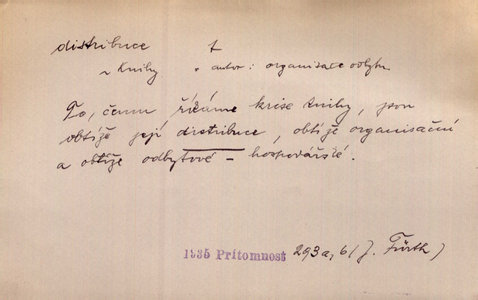 distribuce †
~ knihy " autor: organisace odbytu
To, čemu říkáme krise knihy, jsou
obtíže její distribuce, obtíže organisační
a obtíže odbytové – hospodářské.
1935 Přítomnost 293a,b (J. Fürth)